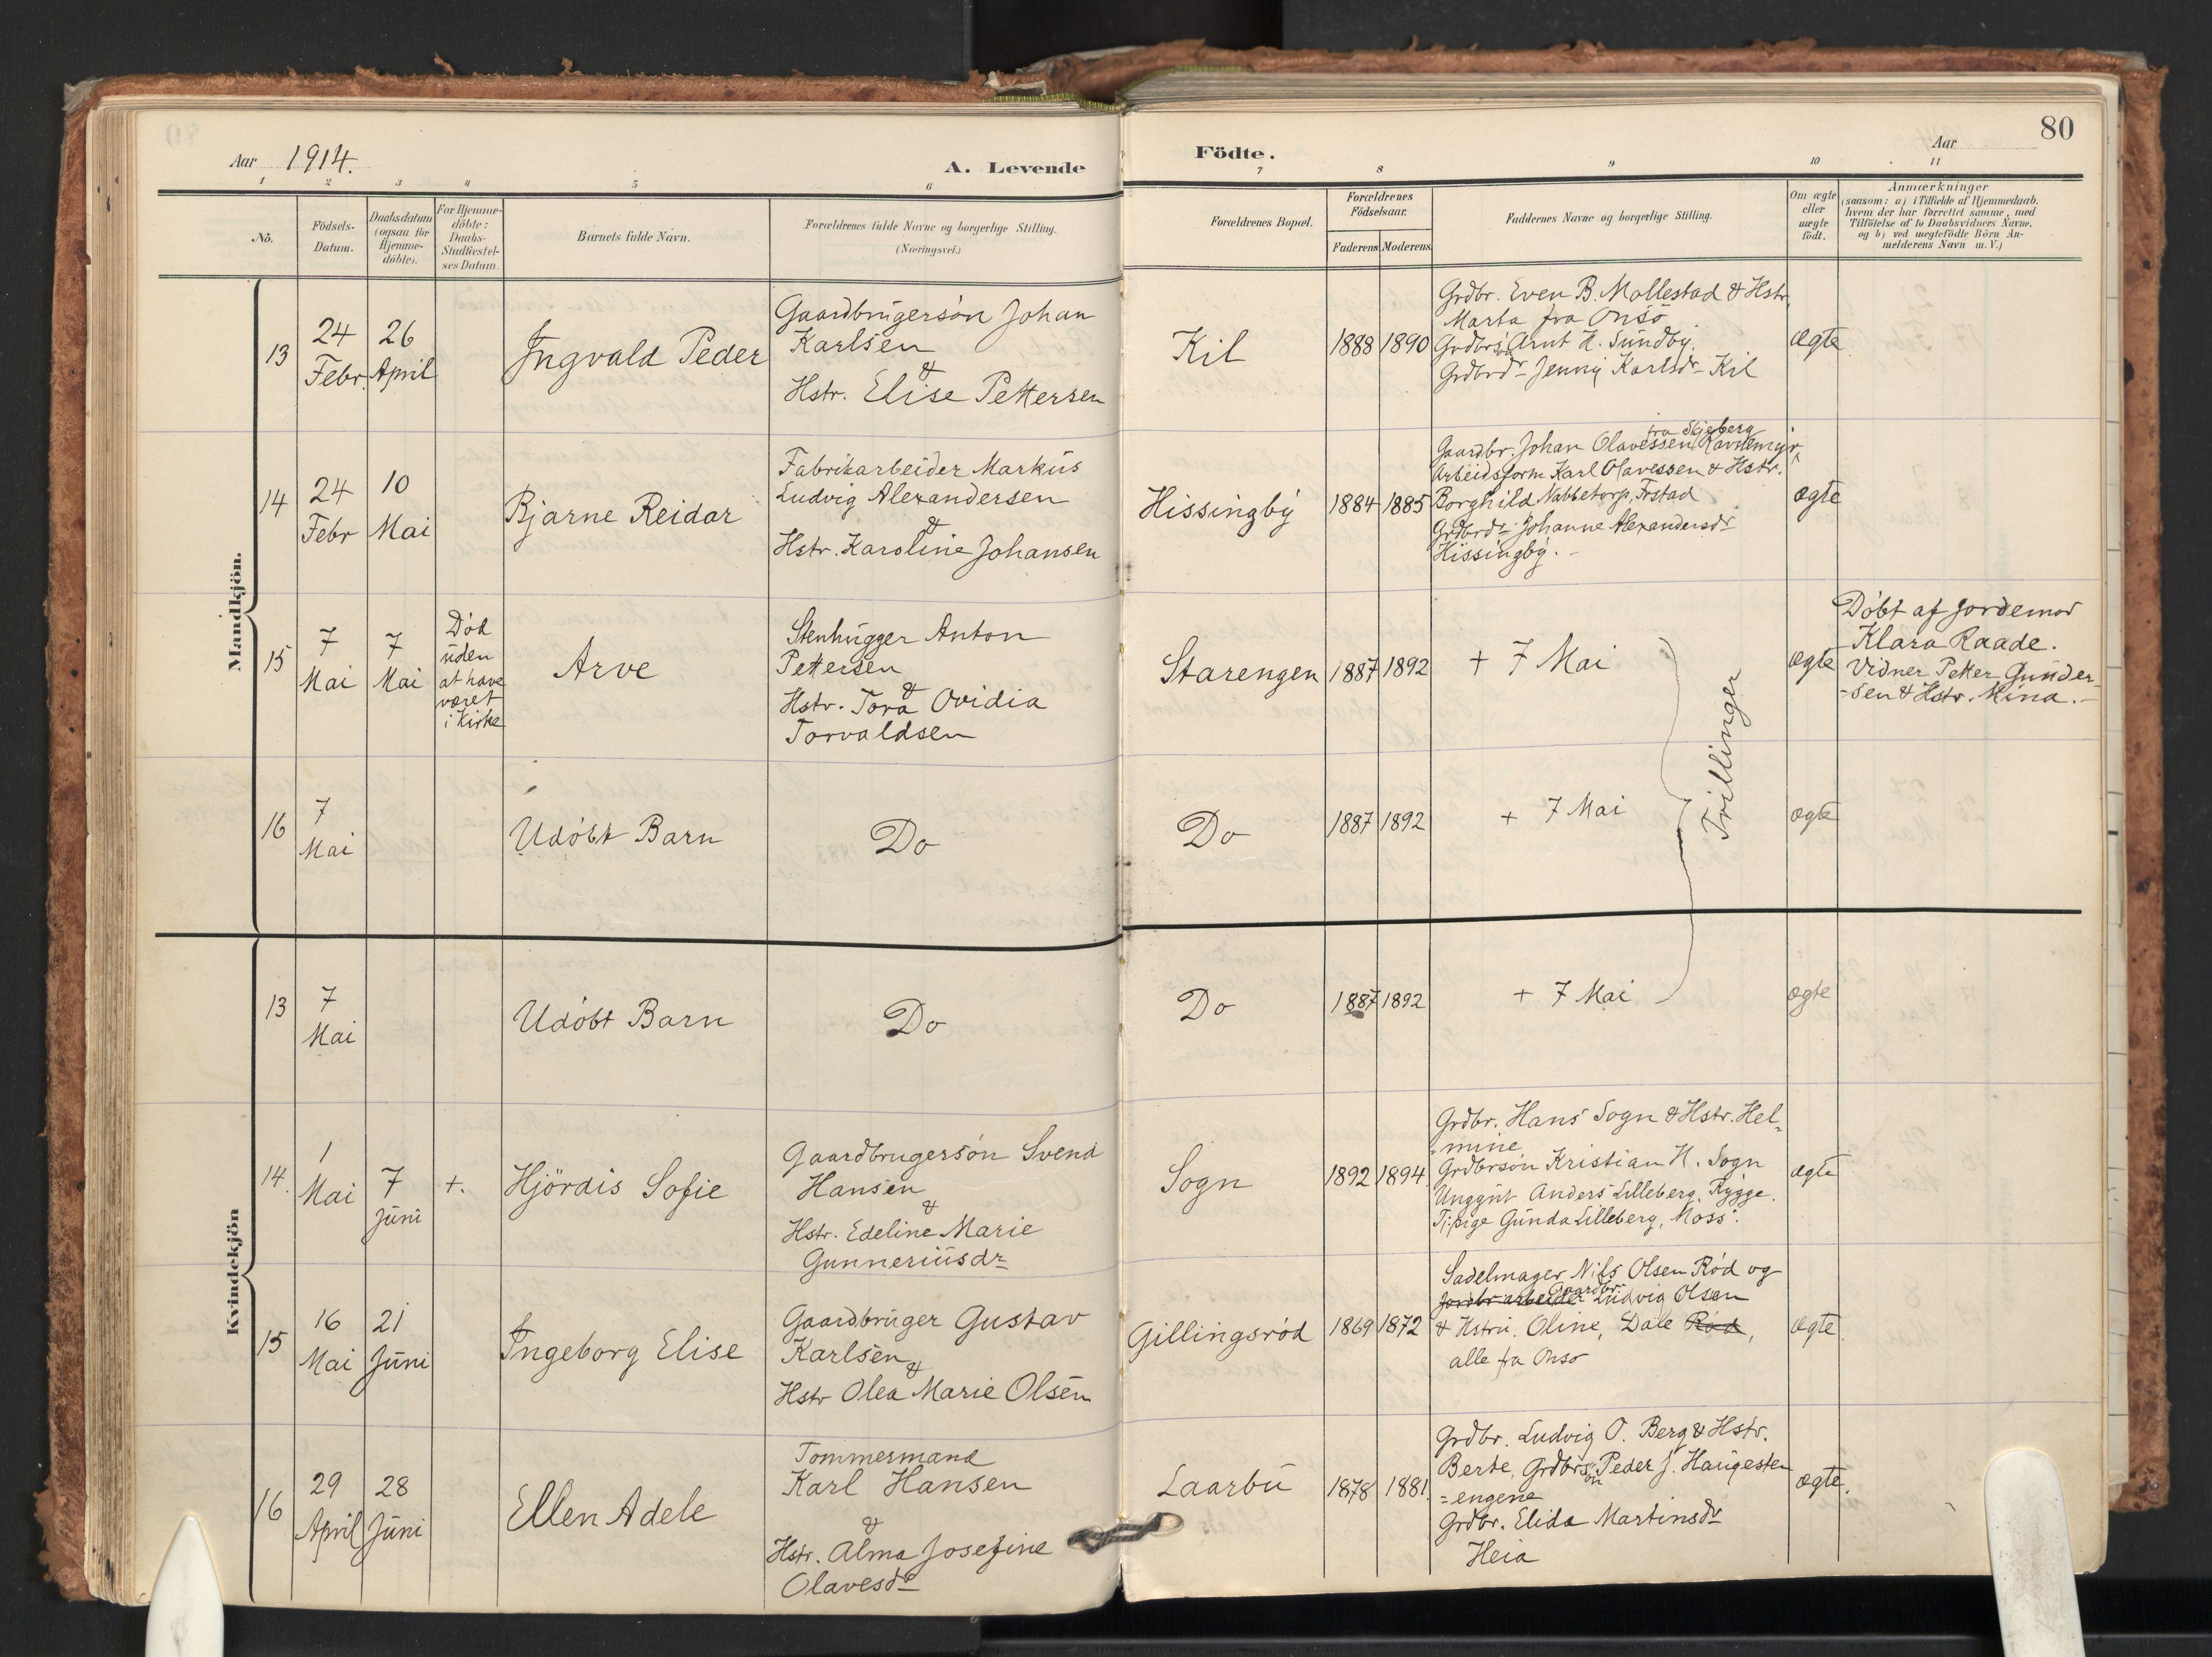 80
Aar 1914.
A. Levende
Födte.
Aar
1 2 3 4 5 6 7 8 9 10 11
No.
Födsels-
Datum.
Daabsdatum
(ogsaa for
Hjemme-
döbte).
For Hjemme-
döbte:
Daabs-
Stadfæstel-
ses Datum.
Barnets fulde Navn.
Forældrenes fulde Navne og borgerlige Stilling.
(Næringsvei.)
Forældrenes Bopæl.
Forældrenes
Födselsaar.
Faderens Moderens
Faddernes Navne og borgerlige Stilling.
Om ægte
eller
uægte
födt.
Anmærkninger
(saasom: a) i Tilfælde af Hjemmedaab,
hvem der har forrettet samme, med
Tilföielse af to Daabsvidners Navne,
og b) ved uegtefödte Börn An-
melderens Navn m.V.)
Mandkjön.
13
24
Febr.
26
April
Ingvald Peder
Gaardbrugersön Johan
Karlsen
&
Hstr. Elise Pettersen
Kil
1888 1890
Grdbr. Even B. Mollestad & Hstr.
Marta fra Onsö
Grdbrsön Arnt H. Sundby.
Grdbrdr Jenny Karlsdr Kil
ægte
14
24
Febr
10
Mai
Bjarne Reidar
Fabrikarbeider Markus
Ludvig Alexandersen
&
Hstr. Karoline Johansen
Hissingby
1884 1885
fra Skjeberg
Gaardbr. Johan Olavessen Ravnemyr,
Arbeidsform Karl Olavessen & Hstr.
Borghild Nabbetorp, Frstad
Grdbrdr Johanne Alexandersdr
Hissingby. -
ægte
15
7
Mai
7
Mai
Död
uden
at have
været
i Kirke
Arve
Stenhugger Anton
Pettersen
&
Hstr. Tora Ovidia
Torvaldsen
Starengen
1887 1892
+ 7 Mai
Trillinger
ægte
Döbt af Jordemor
Klara Raade.
Vidner Petter Gunder-
-sen & Hstr. Mina. -
16
7
Mai
Udöbt Barn
Do
Do
1887 1892
+ 7 Mai
ægte
Kvindekjön
13
7
Mai
Udöbt Barn
Do
Do
1887 1892
+ 7 Mai
ægte
14.
1
Mai
7
Juni
+.
Hjördis Sofie
Gaardbrugersön Svend
Hansen
&
Hstr. Edeline Marie
Gunneriusdr
Sogn
1892 1894
Grdbr. Hans Sogn & Hstr. Hel-
-mine
Grdbrsön Kristian H. Sogn
Unggut Anders Lilleberg, Rygge.
Tj:pige Gunda Lilleberg, Moss.
ægte
15
16
Mai
21
Juni
Ingeborg Elise
Gaardbruger Gustav
Karlsen
&
Hstr Olea Marie Olsen
Gillingsröd
1869 1872
Sadelmager Nils Olsen Röd og
Gaardbr.
Jordbr.arbeider Ludvig Olsen
& Hstru. Oline, Dale Röd,
alle fra Onsö
ægte.
16
29
April
28
Juni
Ellen Adele
Tömmermand
Karl Hansen
&
Hstr. Alma Josefine
Olavesdr
Laarbu
1878 1881.
Grdbr. Ludvig O. Berg & Hstr.
Berte, Grdbrsön Peder J. Haugesten
=engene
Grdbr. Elida Martinsdr
Heia
ægte.